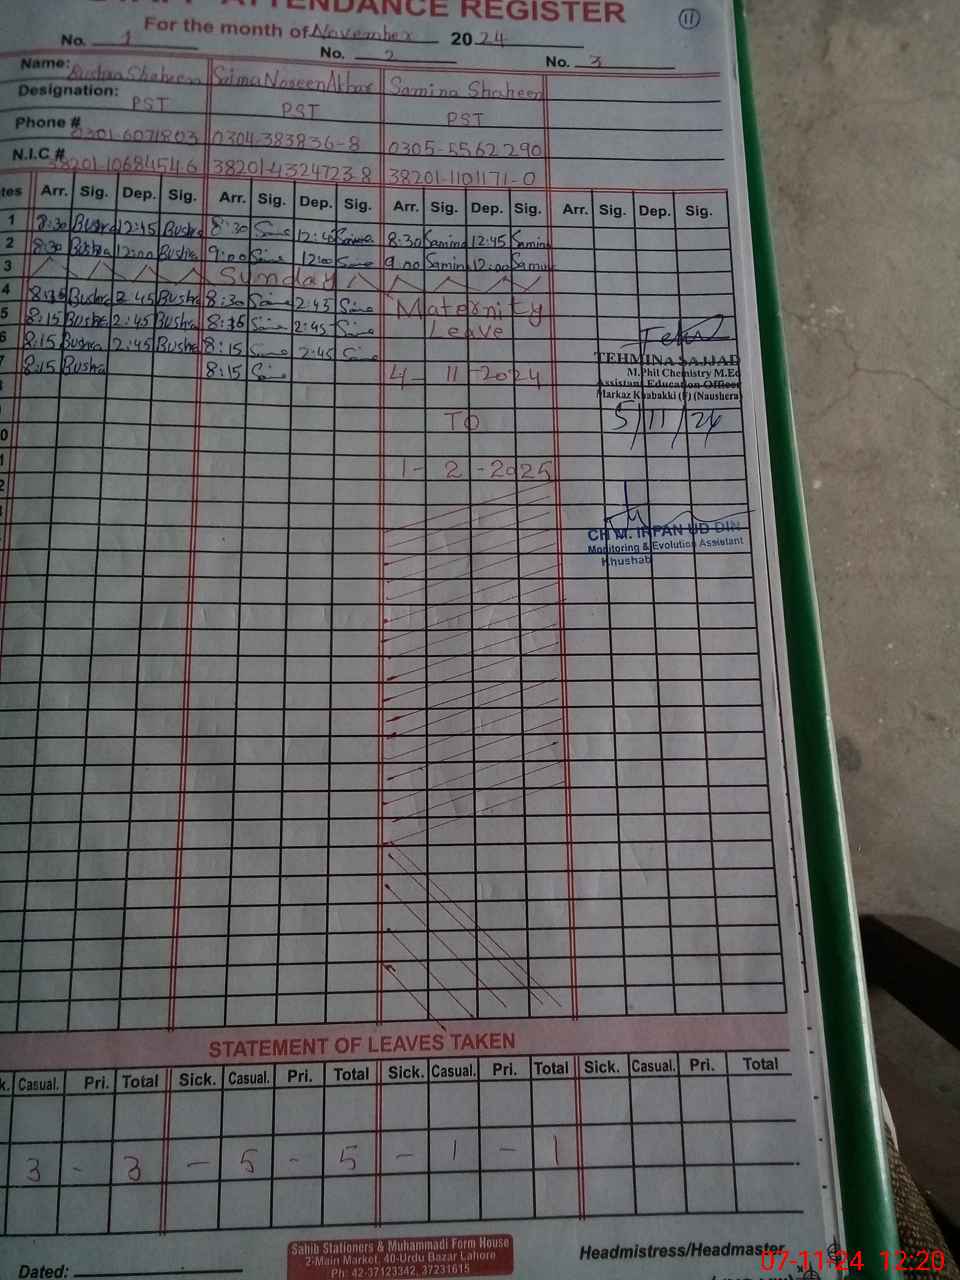 ATTENDANCE REGISTER
11
For the month of November 2024
No. 1 No. 2 No. 3
Name: Bushra Shaheen Saima Noseen Akbar Samina Shaheen
Designation: PST PST PST
Phone # 0301-6071803 0304-383836-8 0305-5562290
N.I.C.# 38201-1068454-6 38201-4324723-8 38201-1101171-0
Arr. Sig. Dep. Sig. Arr. Sig. Dep. Sig. Arr. Sig. Dep. Sig. Arr. Sig. Dep. Sig.
1 8:30 Bushra 12:45 Bushra 8:30 12:45 8:30 Samina 12:45 Samina
2 8:30 Bushra 12:00 Bushra 9:00 12:00 9:00 Samina 12:00 Samina
3 Sunday
4 8:15 Bushra 2:45 Bushra 8:30 2:45 Maternity
5 8:15 Bushra 2:45 Bushra 8:15 2:45 Leave
6 8:15 Bushra 2:45 Bushra 8:15 2:45
7 8:15 Bushra 8:15 4-11-2024
TO
1-2-2025
TEHMINA SAJJAD
M.Phil Chemistry M.Ed
Assistant Education Officer
Markaz Khabakki (F) (Naushera)
5/11/24
CH M. IRFAN UD DIN
Monitoring & Evolution Assistant
Khushab
STATEMENT OF LEAVES TAKEN
Casual. Pri. Total Sick. Casual. Pri. Total Sick. Casual. Pri. Total Sick. Casual. Pri. Total
3 - 3 - 5 - 5 - 1 - 1
Sahib Stationers & Muhammadi Form House
2-Main Market, 40-Urdu Bazar Lahore
Ph: 42-37123342, 37231615
Headmistress/Headmaster
Dated:
07-11-24 12:20